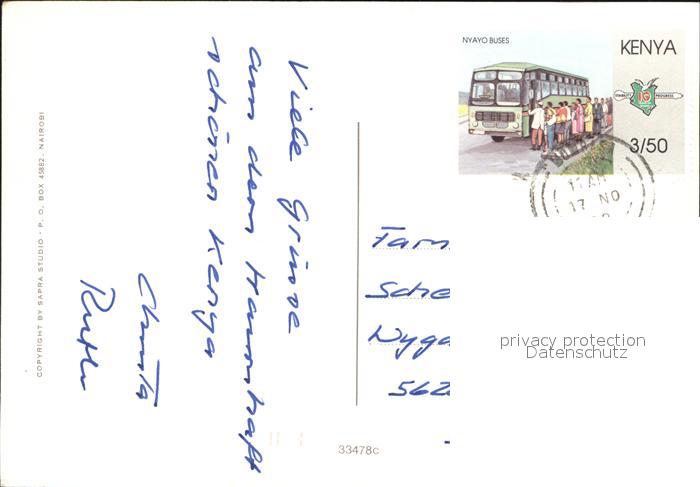 Viele Grüsse
aus dem traumhaft
schönen Kenya
Christa
NYAYO BUSES
KENYA
10
3/50
17 NO
Fam
Sche
562
privacy protection
Datenschutz
33478C
COPYRIGHT BY SAPRA STUDIO · P. O. BOX 45882. NAIROBI